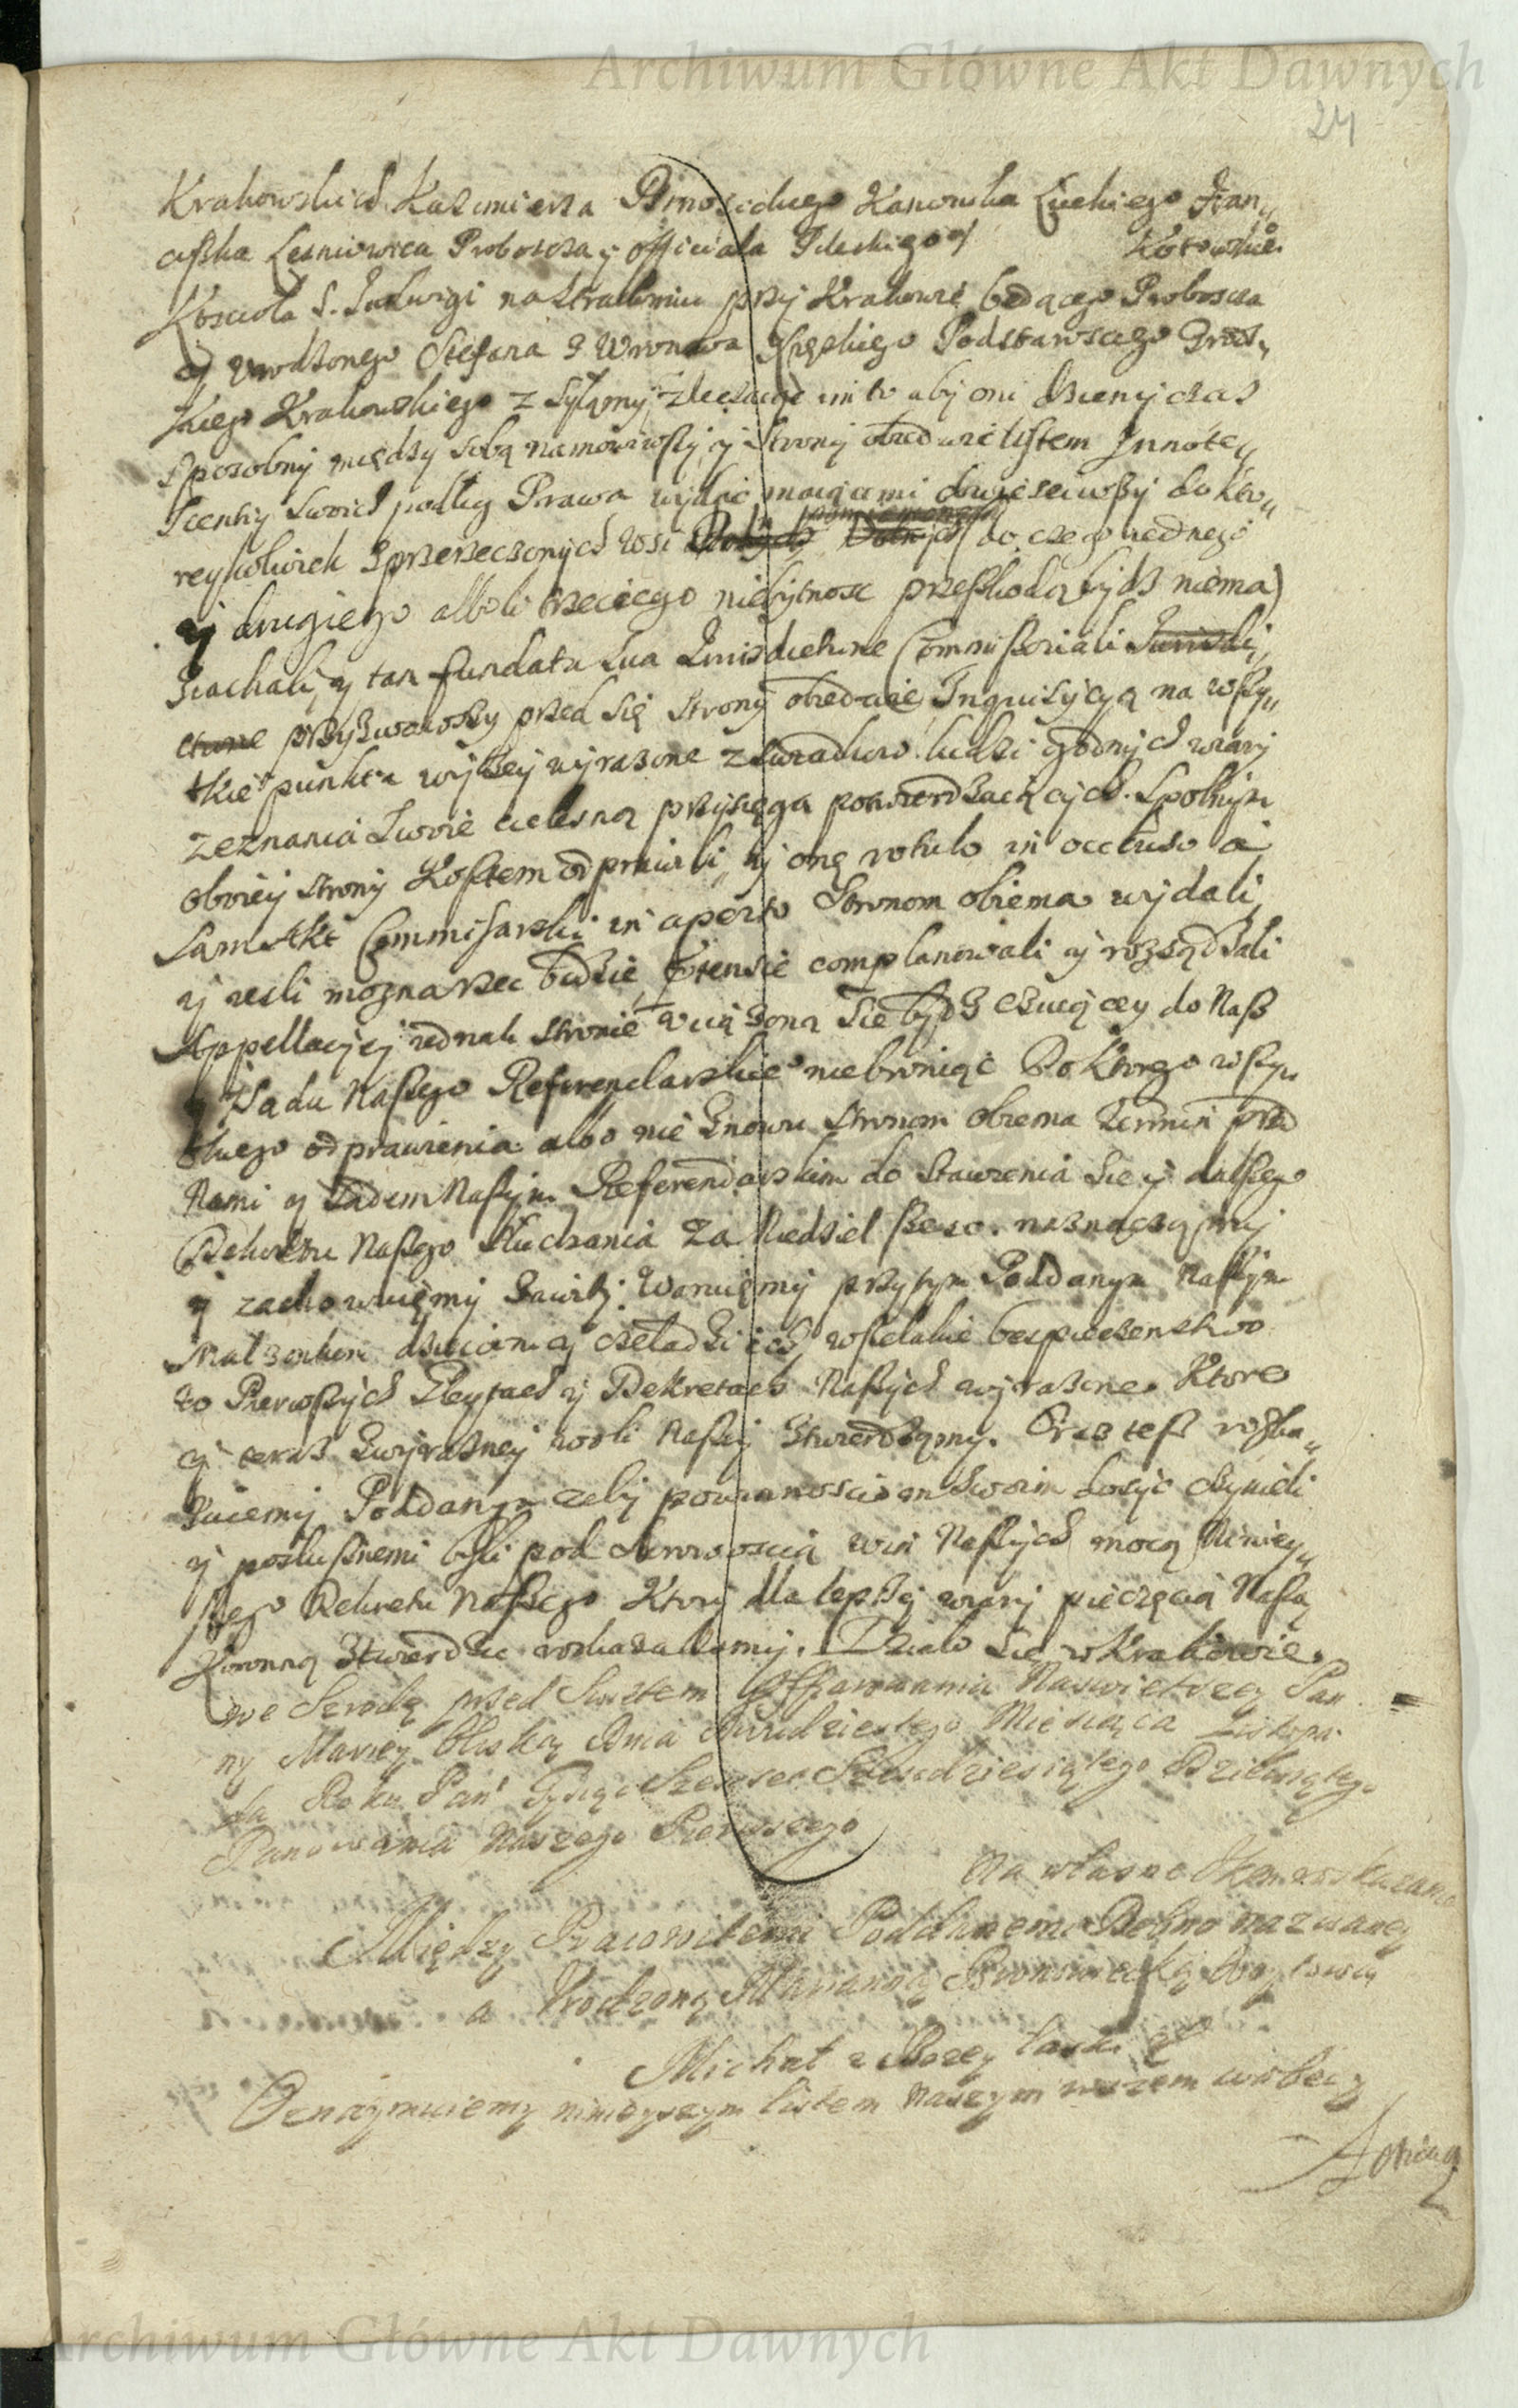 Archiwum Główne Akt Dawnych
24
Krakowskich Kazimierza Kanonika Luckiego Fran„
ciszka Lesniowica Proboscza y officiala Kotowskie
Kosciola S. Jadwigi na Stradomiu przy Krakowie będącego Proboscza
y Urodzonego Stefana z Wronowa Podstarosciego Grodz„
kiego Krakowskiego zsyłamy, zlecaiąc im to aby oni dzien y czas
sposobny między sobą namowiwszy, y Strony obiedwie listem Innote„
scentiy swoich podług Prawa wydac maiącemi obwiesciwszy do kto„
reykolwiek z przerzeczonych wsi do czego iednego
y drugiego albo li trzeciego niebytnosc przeszkodą bydz niema)
Ziachali, y tam fundata sua Jurisdictione Commissoriali
przyzwawszy przed się Strony obiedwie, Inquisicyą na wszy„
tkie punkta wyzey wyrazone z swiadkow ludzi godnych wiary
zeznania swoie cielesną przysięgą potwierdzaiących. Spolnym
oboiey strony Kosztem odprawili, y onę rotulo in occluso a
sam Akt Commissarski in aperto Stronom obiema wydali,
y iesli mozna rzec będzie, complanowali y rozsądzali
Appellacyey iednak stronie uciązoną się bydz czuiącey do Nas
y Sądu Naszego Referendarskiego niebroniąc Do ktorego wszy„
tkiego odprawienia albo nie znowu Stronom obiema termin przed
Nami y Sądem Naszym Referendarskim do Stawienia się y dalszego
Dekretu Naszego słuchania Za Niedziel szesc naznaczamy
y zachowuiemy Zawity. Waruiemy przytym Poddanym Naszym
Malzonkom dzieciom y czeladzi ich wszelakie bespieczenstwo
to Pierwszych Gleytach y Dekretach Naszych wyrazone. Ktore
y teraz z wyrazney woli Naszey stwierdzamy. Oraz tesz roska„
zuiemy Poddanym zeby powinnosciom swoim dosyc czynili
y posłusznemi byli pod surowoscią win Naszych mocą Niniey„
szego Dekretu Naszego Ktory dla lepszey wiary pieczęcią Naszą
Koronną stwierdzic roskazalismy. Dzialo się w Krakowie
we Srodę przed Swiętem Offiarowania Naswietszey Pan
ny Maryey bliską Dnia Dwudziestego Miesiąca Listopa
da Roku Pań Tysiąc Szescset Szescdziesiątego Dziewiątego
Panowania Naszego Pierwszego
Na własne
Między Pracowitemi Poddanemi nazwaney
a Urodzoną Maryanną
Michał z Bozey łaski
Oznaymuiemy ninieyszym listem Naszym wszem wobecz
Archiwum Główne Akt Dawnych